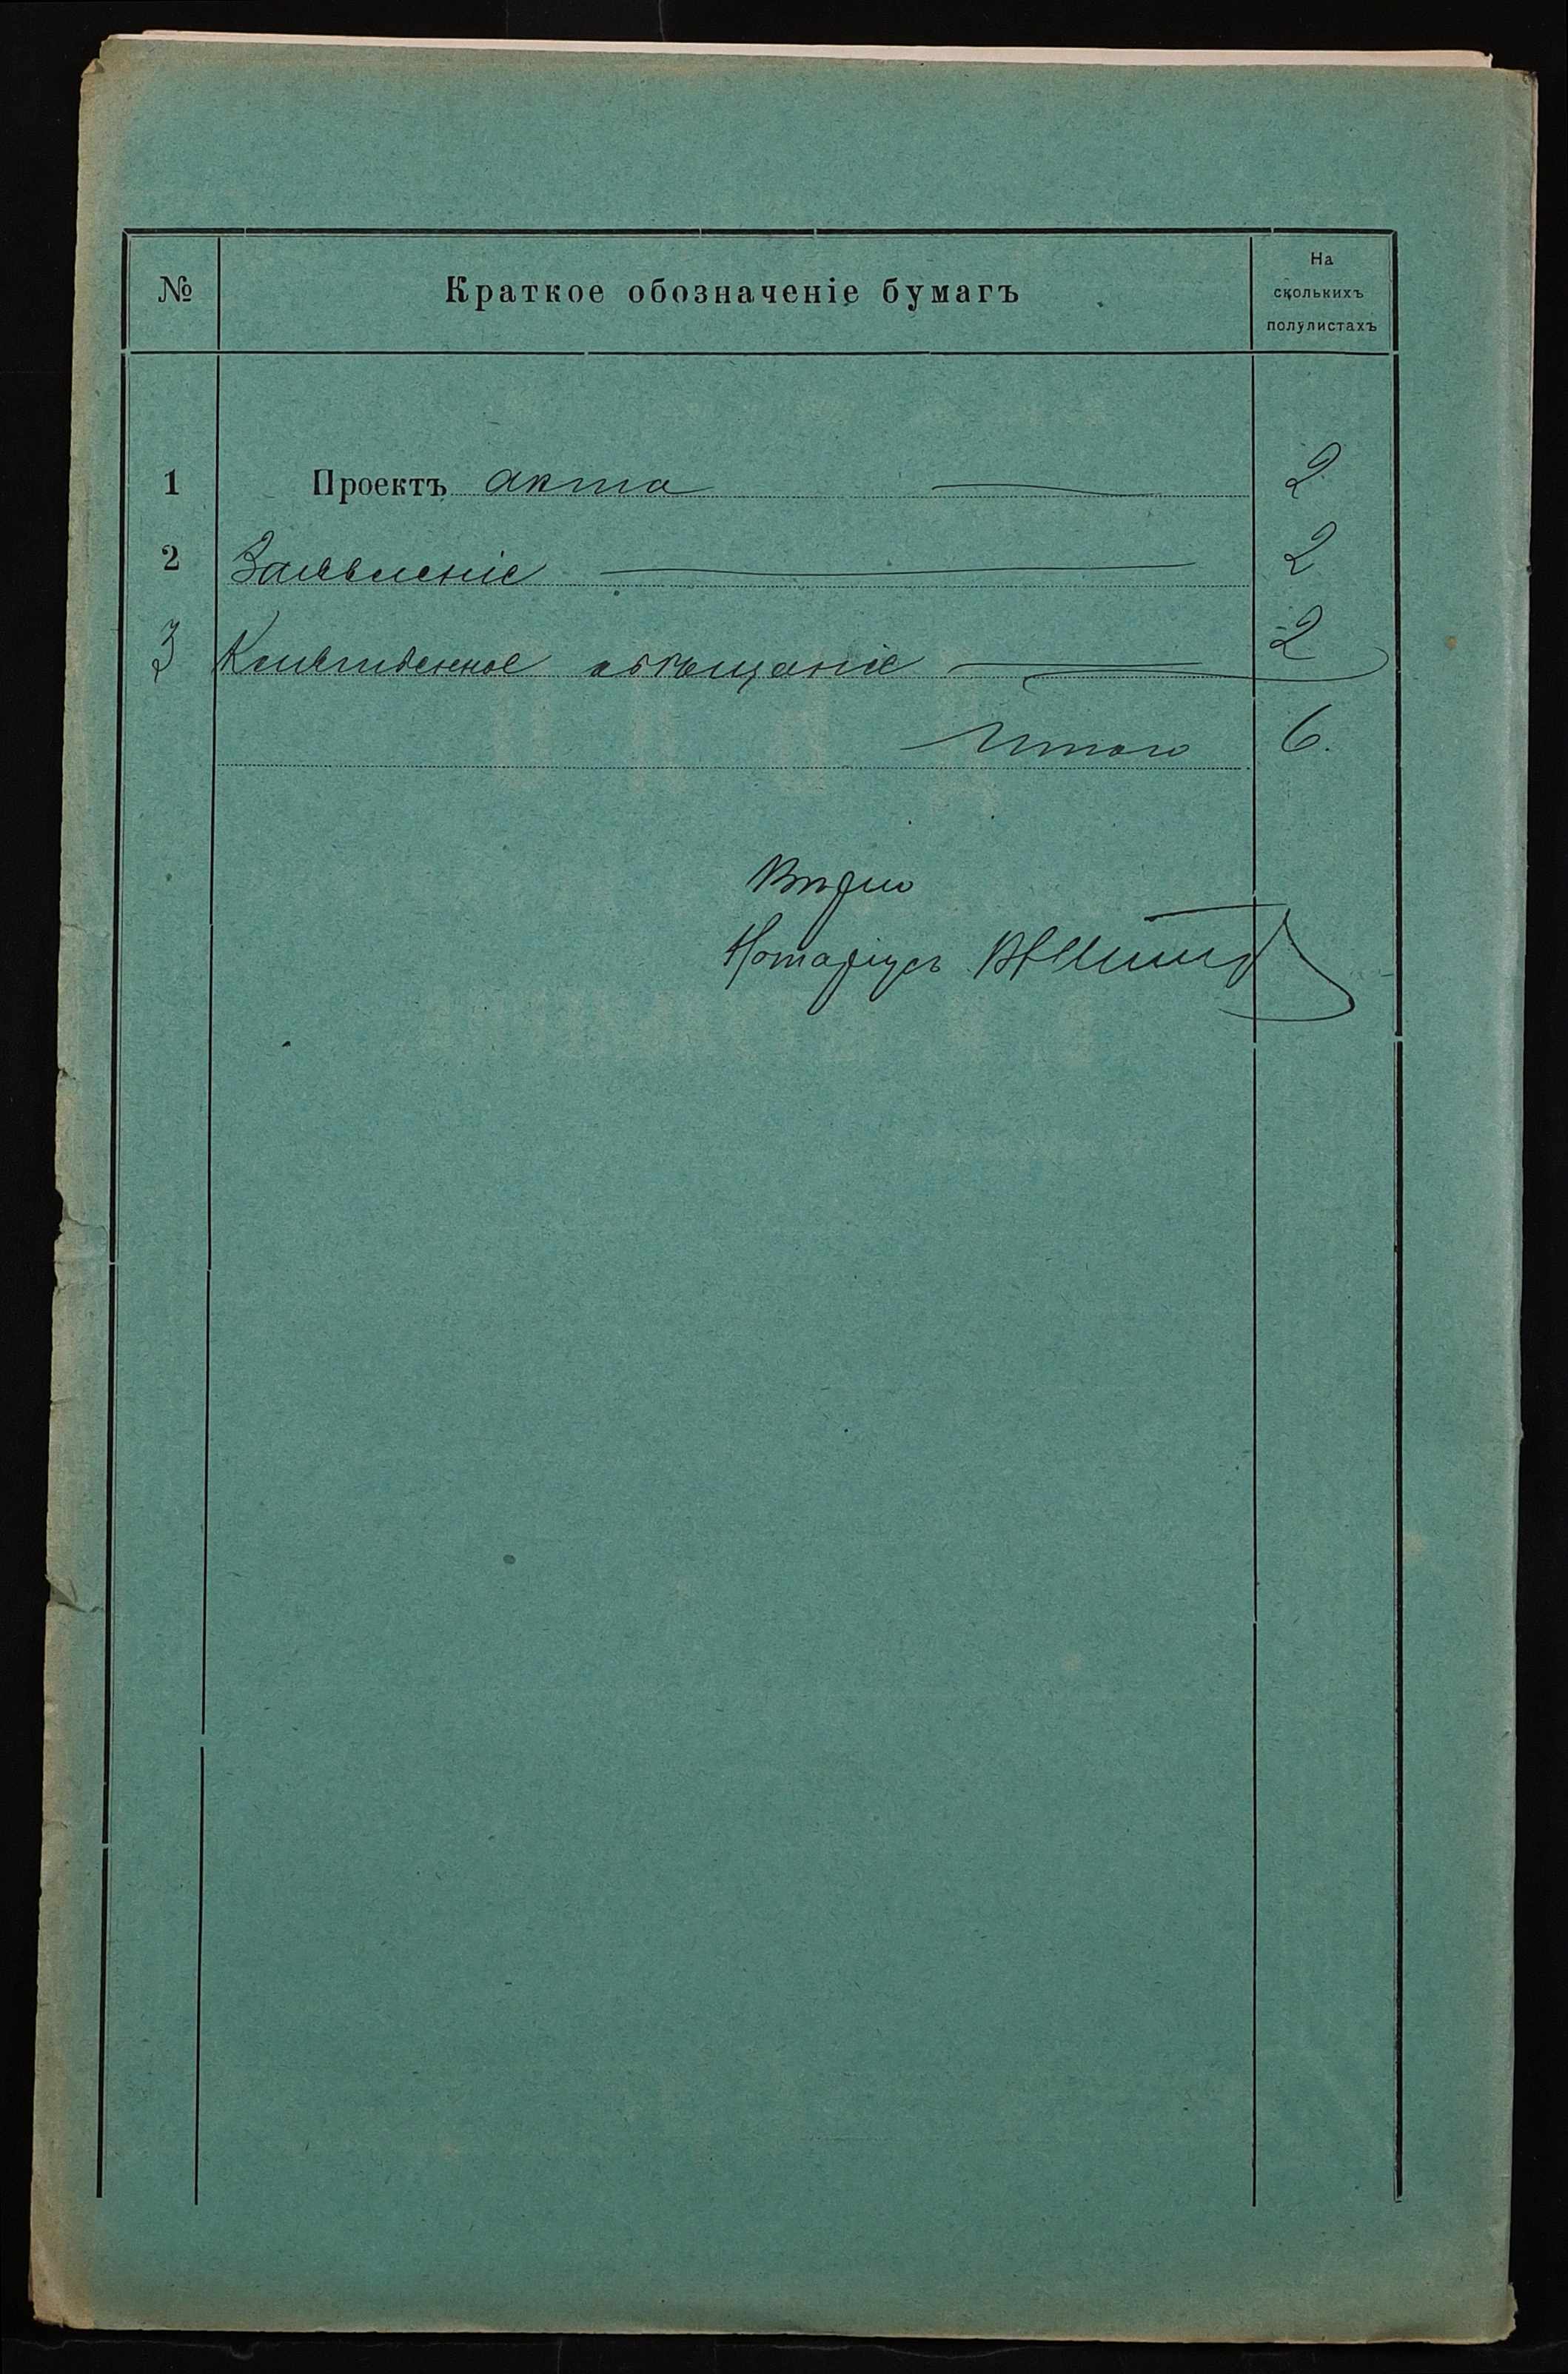 № Краткое обозначеніе бумагъ На сколькихъ полулистахъ
1 Проектъ акта 2
2 Заявленіе 2
3 Клятвенное обѣщаніе 2
Итого 6.
Вѣрно
Нотаріусъ